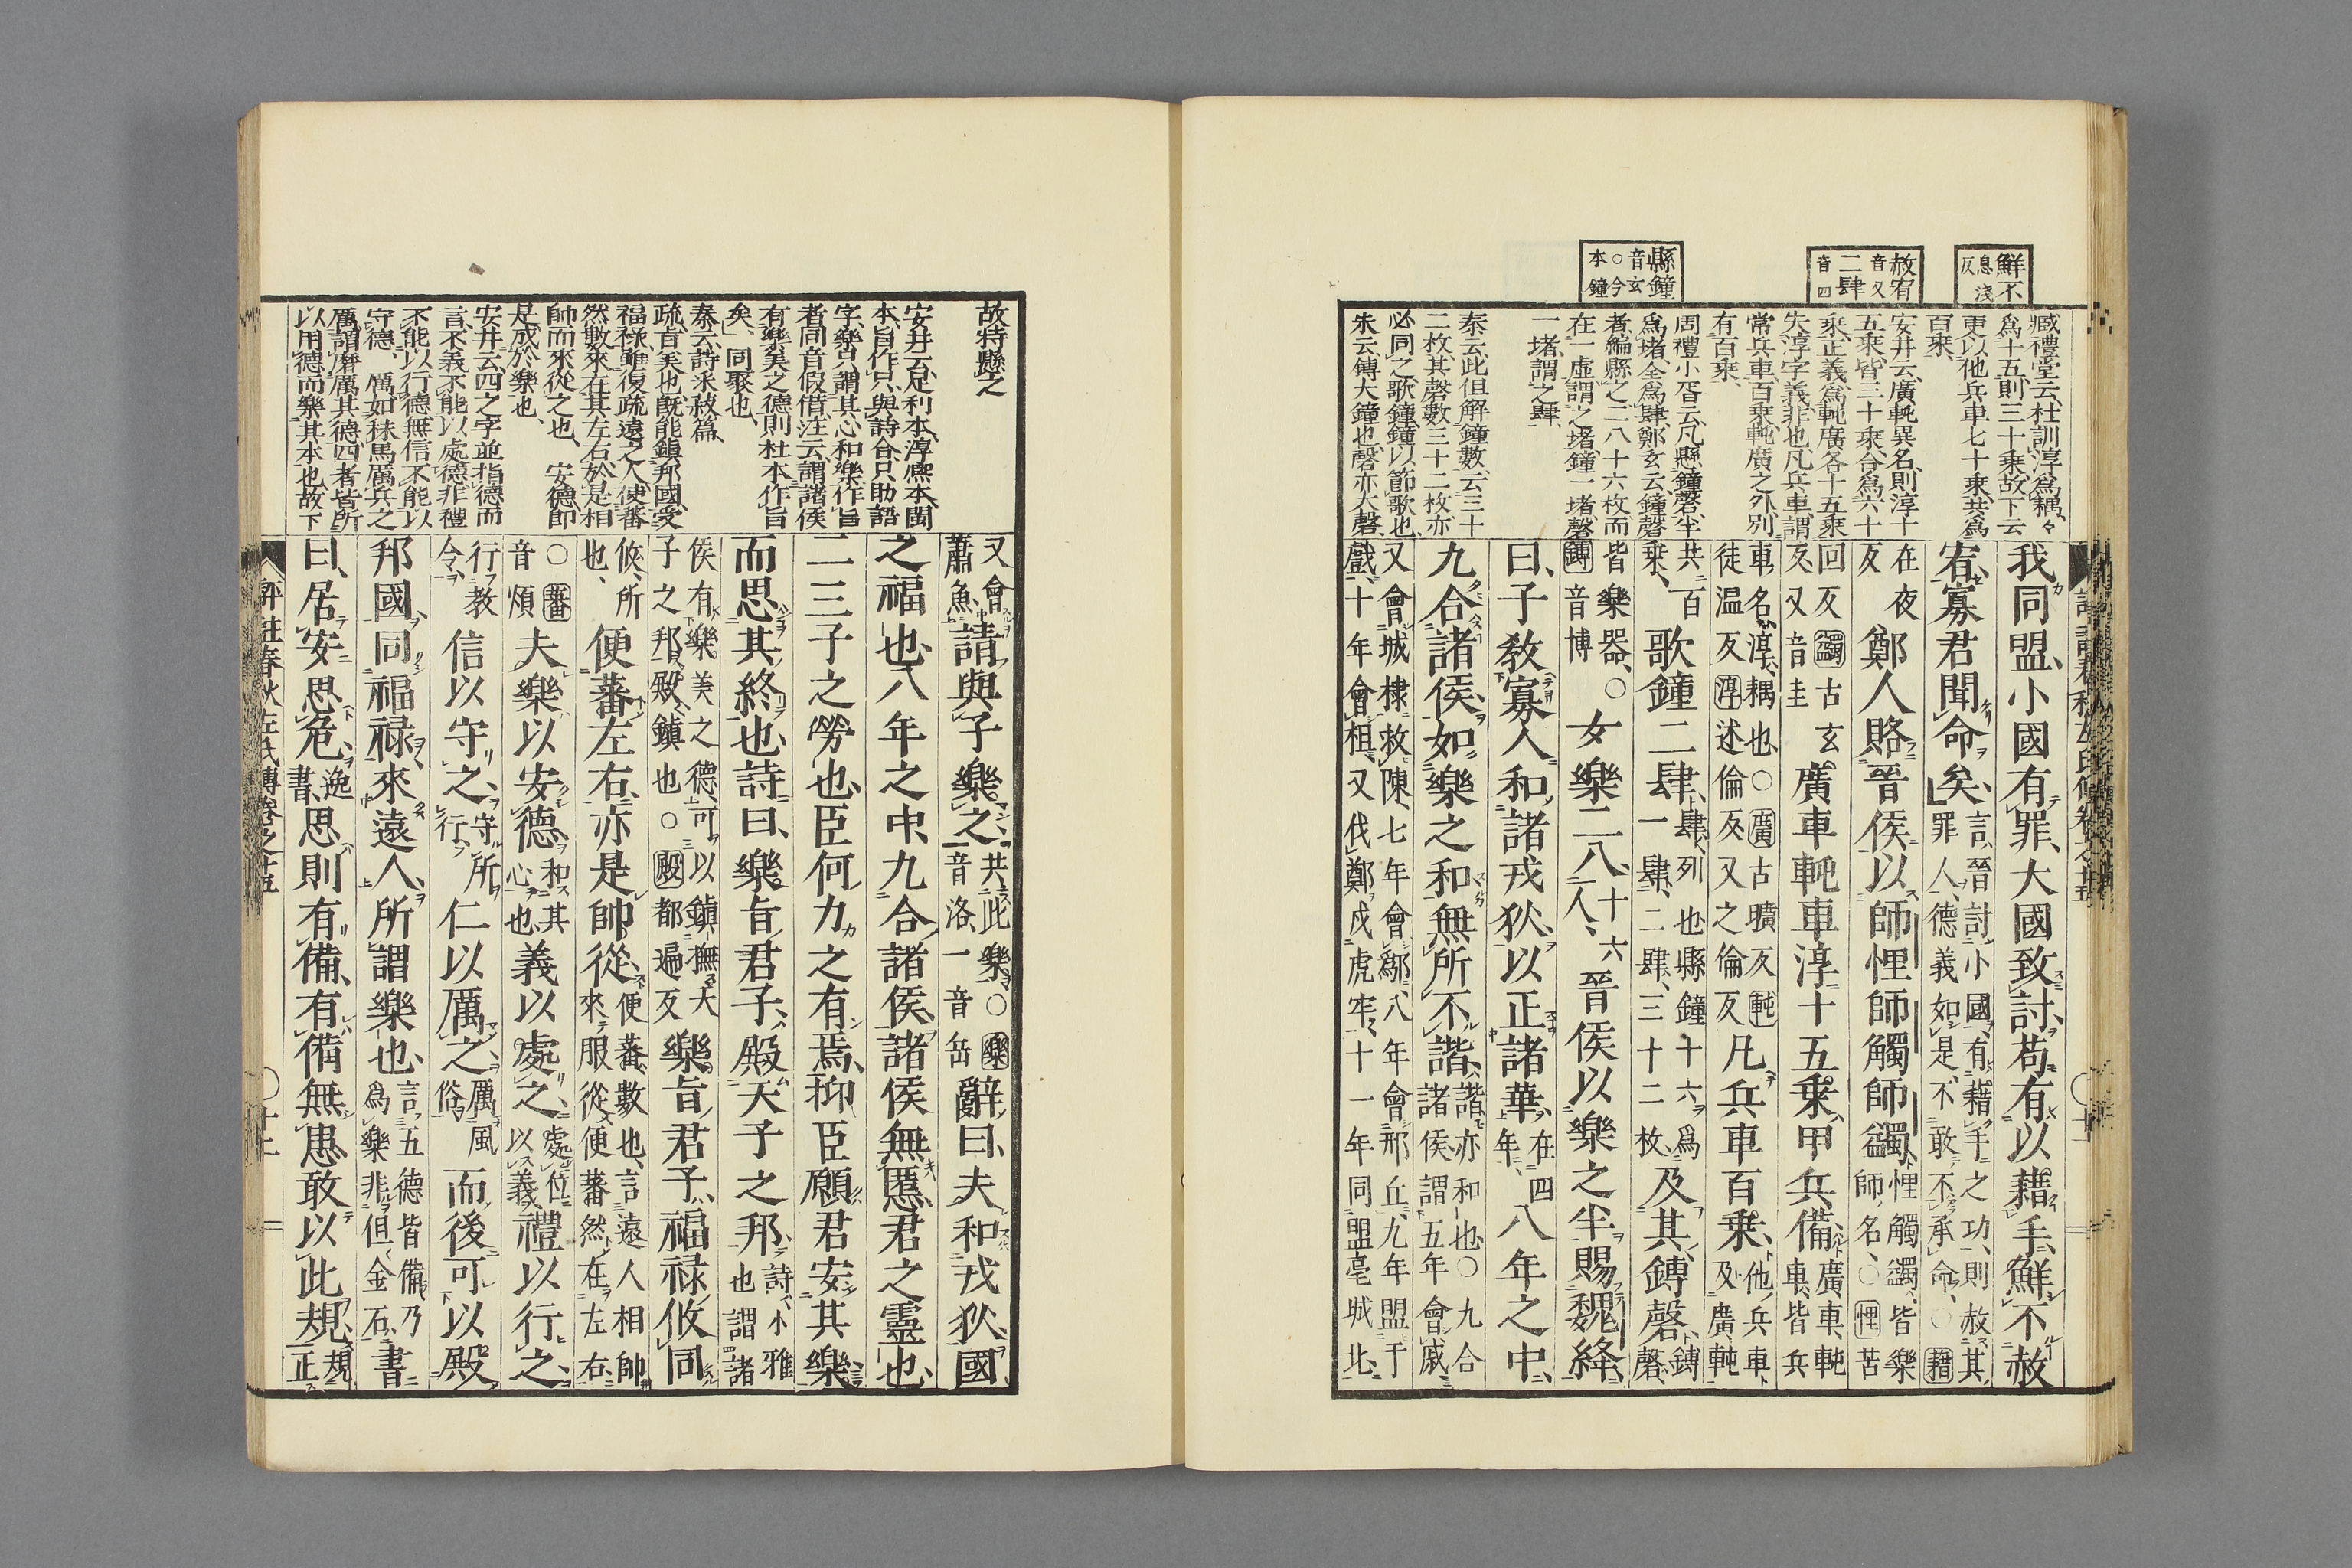 鮮不
息淺
反
赦宥
音又
二肆
音四
縣鐘
音玄
○今
本鐘
臧禮堂云、杜訓淳爲耦、々
爲十五、則三十乘、故下云
更以他兵車七十乘、共爲
百乘、
安井云、廣軘異名、則淳十
五乘、皆三十乘、合爲六十
乘、正義爲軘廣各十五乘
失淳字義、非也、凡兵車、謂
常兵車、百乘、軘廣之外、別
有百乘、
周禮小胥云、凡縣鐘磬、半
爲堵、全爲肆、鄭玄云、鐘磬
者、編縣之、二八十六枚、而
在一虡、謂之堵、鐘一堵、磬
一堵、謂之肆、
秦云、此但解鐘數、云三十
二枚、其磬數三十二枚亦
必同之、歌鐘、鐘以節歌也、
朱云、鎛大鐘也、磬亦大磬、
我同盟、小國有罪、大國致討、苟有以藉手、鮮不赦
宥、寡君聞命矣、言、晉討小國、有藉手之功、則赦其
罪人、德義如是、不敢不承命、○藉
在夜
反 鄭人賂晉侯以師悝師觸師蠲、悝觸蠲、皆樂
師名、○悝苦
回反蠲古玄
反又音圭 廣車軘車淳十五乘、甲兵備、廣車、軘
車、皆兵
車名、淳、耦也、○廣古曠反軘
徒温反淳述倫反又之倫反 凡兵車百乘、他兵車
及廣軘
共百
乘、 歌鐘二肆、肆、列也、縣鐘十六爲
一肆、二肆、三十二枚、 及其鎛磬、鎛
磬、
皆樂器、○
鎛音博 女樂二八、十六
人、 晉侯以樂之半賜魏絳、
曰、子教寡人和諸戎狄、以正諸華、在四
年、 八年之中、
九合諸侯、如樂之和、無所不諧、諧亦和也、○九合
諸侯、謂五年會戚、
又會城棣救陳、七年會鄬、八年會邢丘、九年盟于
戲、十年會柤、又伐鄭戍虎牢、十一年同盟亳城北、
故特懸之
安井云、足利本、淳熈本、閩
本、旨作只、與詩合、只助語
字、樂只、謂其心和樂、作旨
者、同音假借、注云、謂諸侯
有樂美之德、則杜本作旨
矣、同聚也、
秦云、詩采菽篇、
疏、旨、美也、旣能鎮邦國、受
福祿、雖復疏遠之人、使蕃
然數來在其左右、於是相
帥而來從之也、安德、卽
是成於樂也、
安井云、四之字並指德而
言、不義不能以處德、非禮
不能以行德、無信不能以
守德、厲如秣馬厲兵之
厲、謂磨厲其德、四者皆所
以用德、而樂其本也、故下
又會
蕭魚、 請與子樂之、共此樂、○樂
音洛、一音岳 辭曰、夫和戎狄、國
之福也、八年之中、九合諸侯、諸侯無慝、君之靈也、
二三子之勞也、臣何力之有焉、抑臣願君安其樂、
而思其終也、詩曰、樂旨君子、殿天子之邦、詩、小雅
也、謂諸
侯有樂美之德、可以鎮撫天
子之邦、殿、鎮也○殿都遍反 樂旨君子、福祿攸同、
攸、所
也、 便蕃左右、亦是帥從、便蕃、數也、言遠人相帥
來服從、便蕃然在左右、
○蕃
音煩 夫樂以安德、和其
心也、 義以處之、處位
以義、 禮以行之、
行教
令、 信以守之、守所
行、 仁以厲之、厲風
俗、 而後可以殿
邦國、同福祿、來遠人、所謂樂也、言五德皆備、乃
爲樂、非但金石、 書
曰、居安思危、逸
書、 思則有備、有備無患、敢以此規、規
正
評註春秋左氏傳卷之十五
○十二